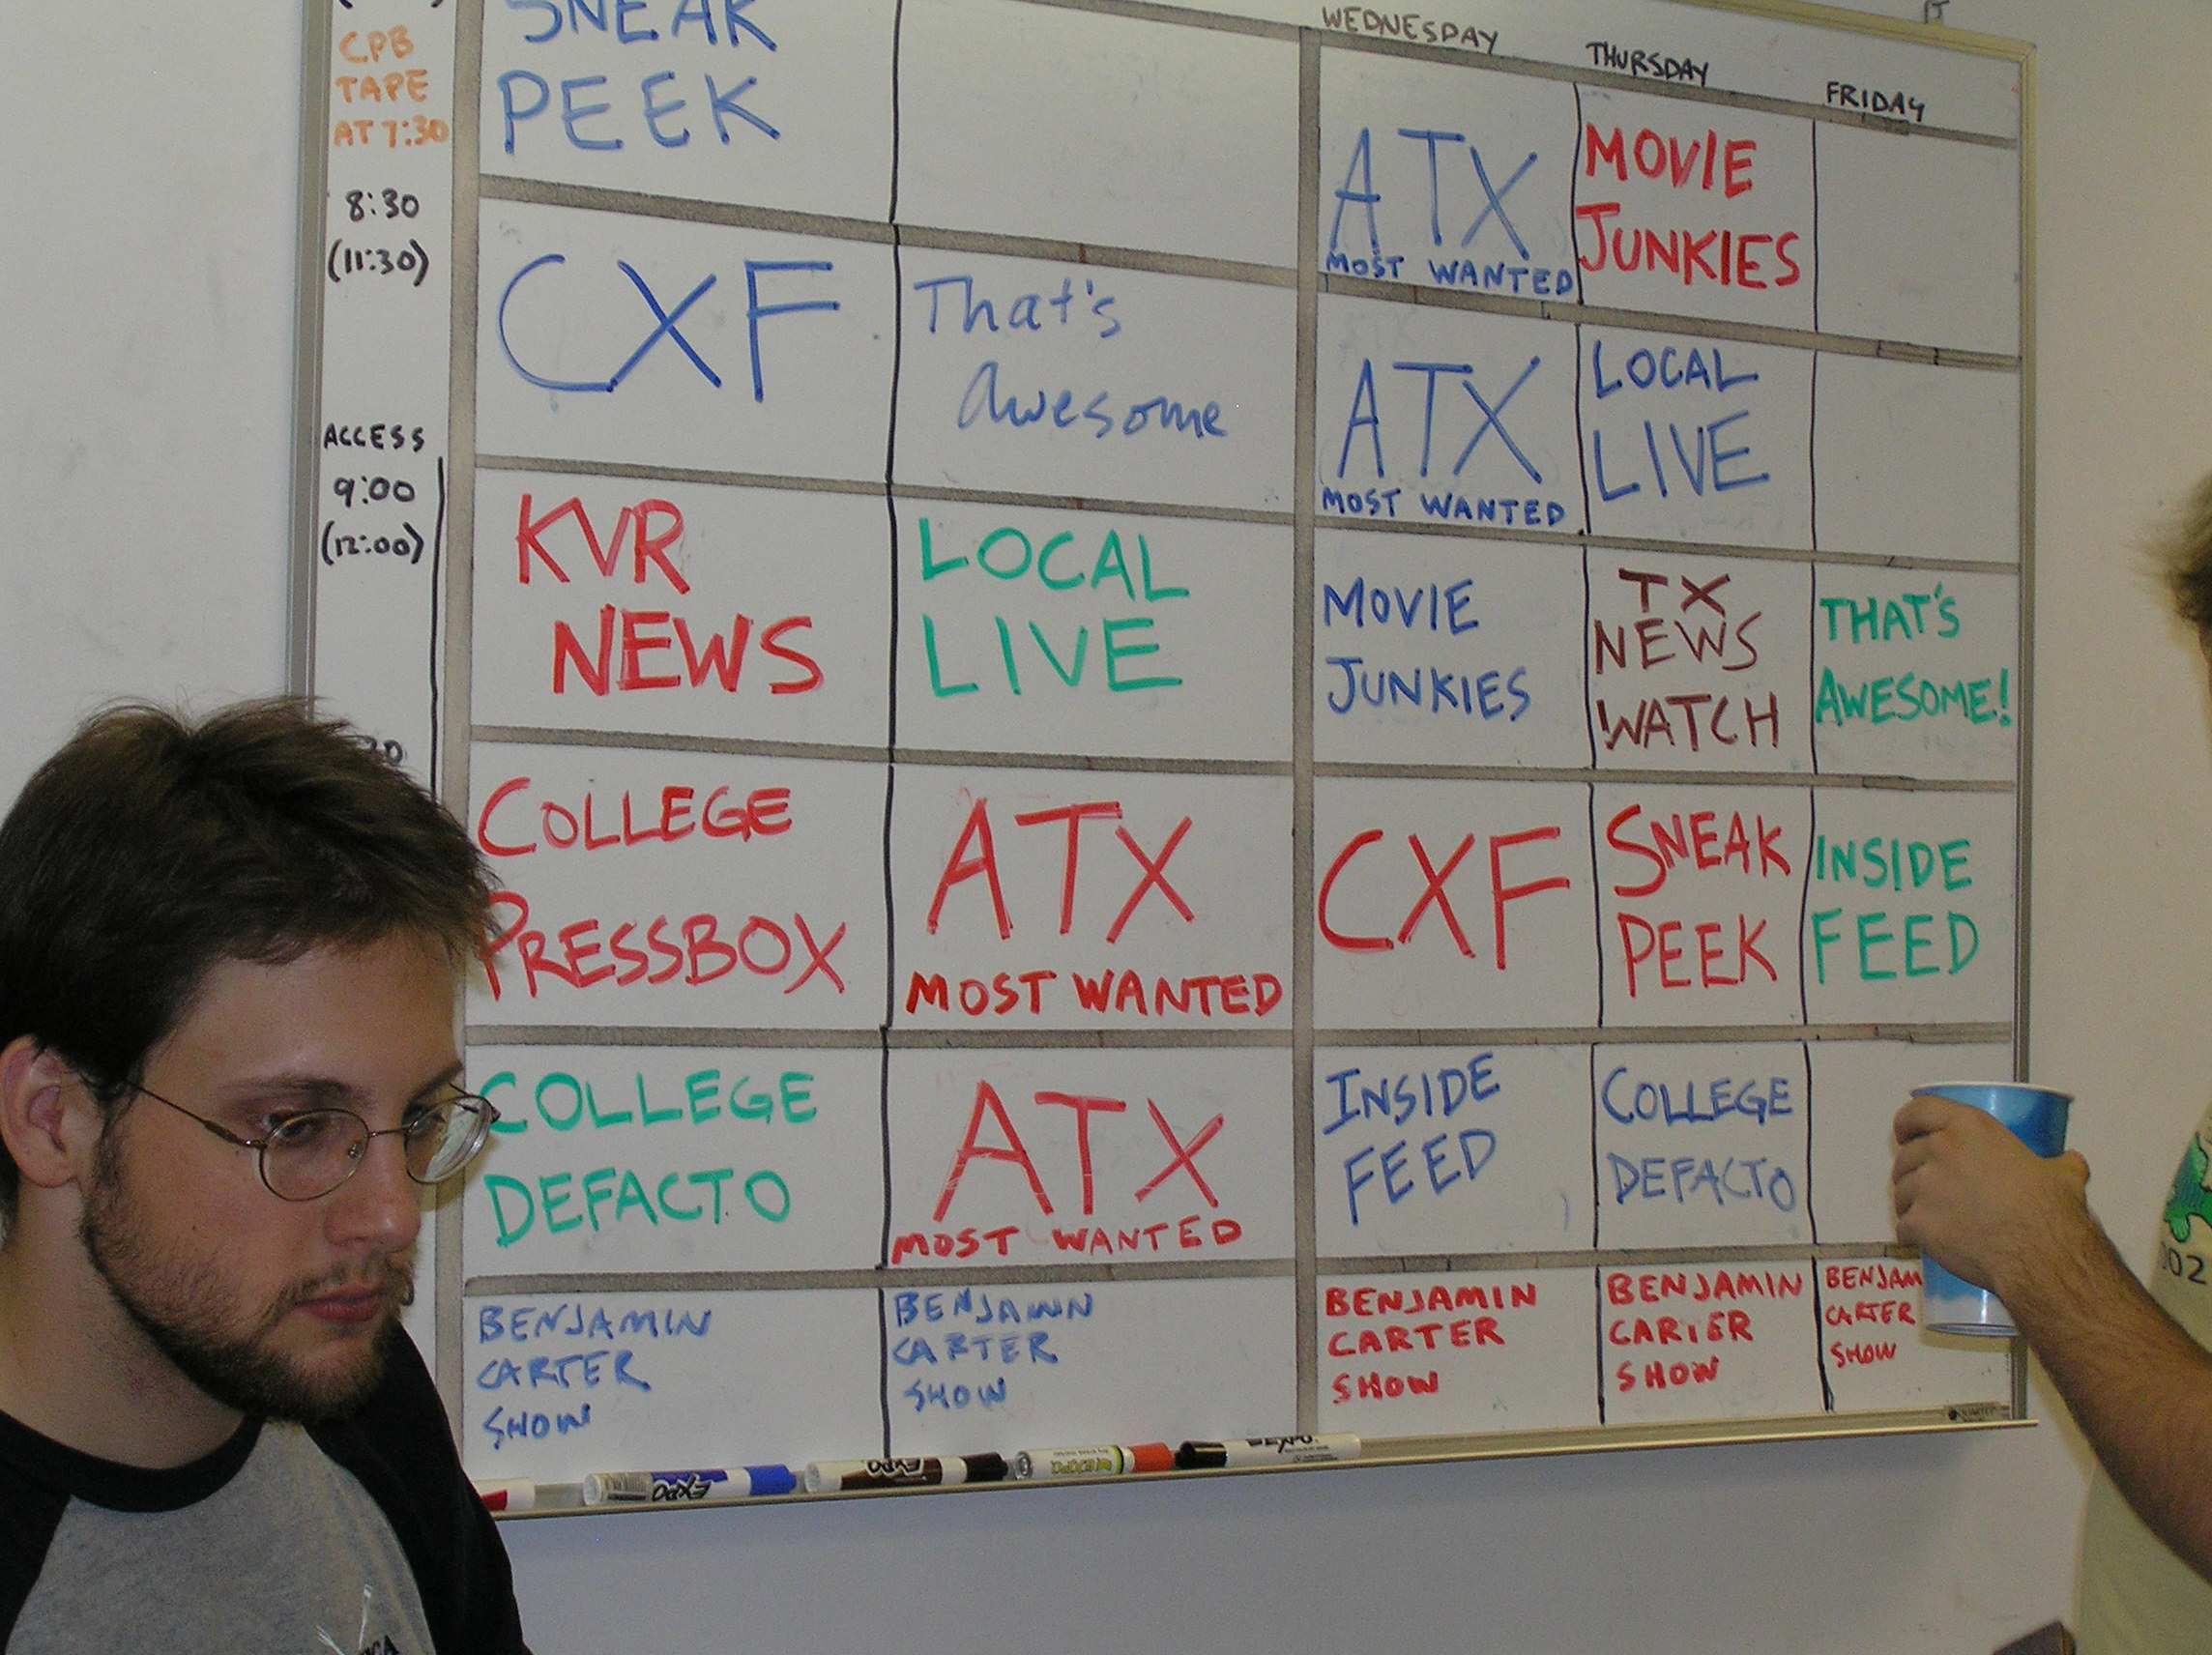 CPB
TAPE
AT 7:30
8:30
(11:30)
ACCESS
9:00
(12:00)
WEDNESDAY
THURSDAY
FRIDAY
SNEAK
PEEK
ATX
MOST WANTED
MOVIE
JUNKIES
CXF
That's
Awesome
ATX
MOST WANTED
LOCAL
LIVE
KVR
NEWS
LOCAL
LIVE
MOVIE
JUNKIES
TX
NEWS
WATCH
THAT'S
AWESOME!
COLLEGE
PRESSBOX
ATX
MOST WANTED
CXF
SNEAK
PEEK
INSIDE
FEED
COLLEGE
DEFACTO
ATX
MOST WANTED
INSIDE
FEED
COLLEGE
DEFACTO
BENJAMIN
CARTER
SHOW
BENJAMIN
CARTER
SHOW
BENJAMIN
CARTER
SHOW
BENJAMIN
CARTER
SHOW
BENJAM
CARTER
SHOW
EXPO
EXPO
EXPO
EXPO
002